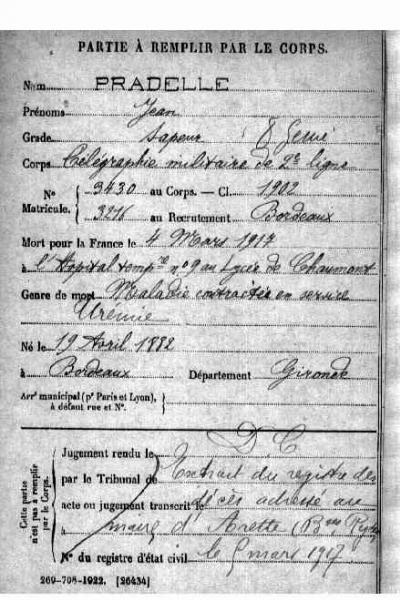 PARTIE À REMPLIR PAR LE CORPS.
Nom PRADELLE
Prénoms Jean
Grade Sapeur 8 Génie
Corps Télégraphie militaire de 2e ligne
No 3430 au Corps. — Cl. 1902
Matricule. 3216 au Recrutement Bordeaux
Mort pour la France le 4 Mars 1917
à l'Hopital tempre no 9 au Lycée de Chaumont
Genre de mort Maladie contractée en service
Urémie
Né le 19 Avril 1882
à Bordeaux Département Gironde
Arrt municipal (pr Paris et Lyon),
à défaut rue et No.
D C
Cette partie
n'est pas à remplir
par le Corps.
Jugement rendu le
par le Tribunal de Extrait du registre des
acte ou jugement transcrit le décès adressé au
à maire d'Arette (Bses
No du registre d'état civil le mars 1917
269-708-1922. [26434]